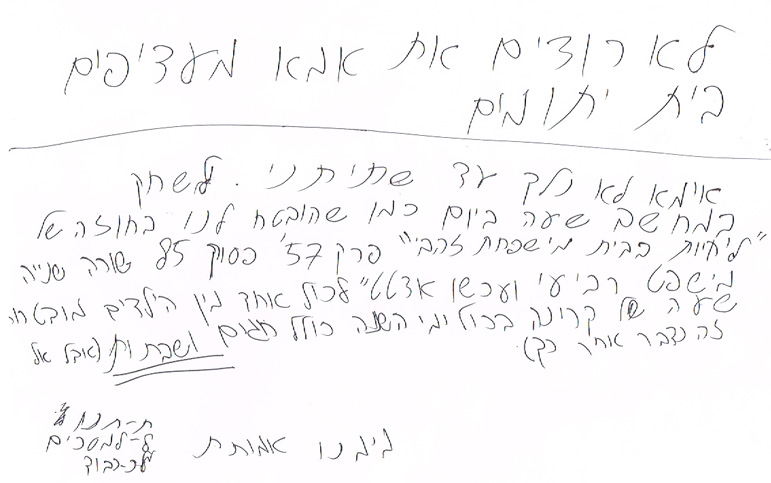 לא רוצים את אמא מעדיפים
בית יתומים
אימא לא נלך עד שתיתני. לשחק
במחשב שעה ביום כמו שהובטח לנו בחוזה של
"לחיות בבית מישפחת זהבי" פרק 57' פסוק 85 שורה שנייה
מישפט רביעי ועכשו אצטט" לכול אחד מין הילדים מובטחת
שעה של קרונה בכול ימי השנה כולל חגים ושבתות (אובל אל
זה נדבר אחר כך)
ת-תנו
ל-למסכים
כ-כבוד
גימנו אמותת